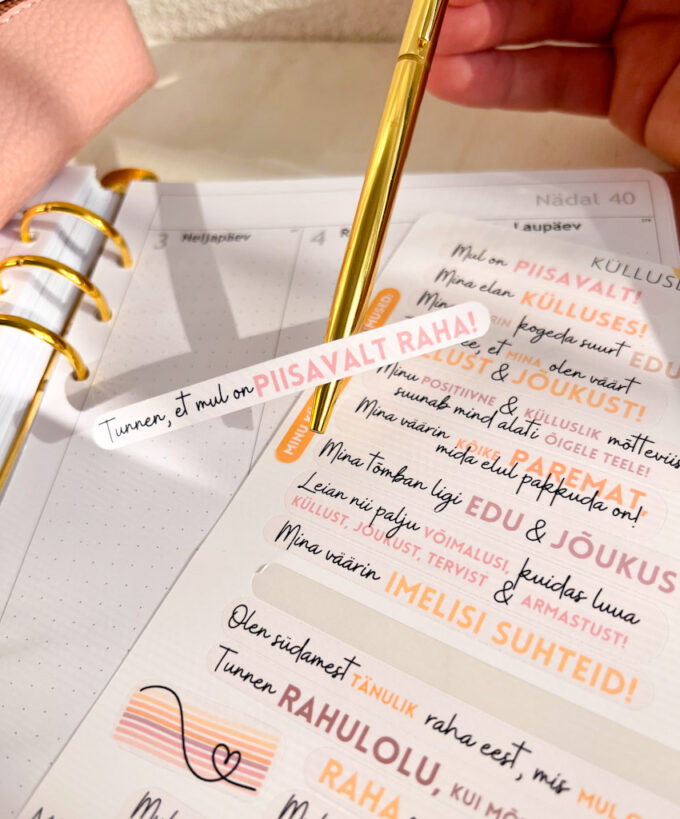 Nädal 40
3 Neljapäev
4
Laupäev
KÜLLUSE
Mul on PIISAVALT!
Mina elan KÜLLUSES!
kogeda suurt EDU
et MINA olen väärt
& JÕUKUST!
Minu POSITIIVNE & KÜLLUSLIK mõtteviis
suunab mind alati ÕIGELE TEELE!
Tunnen, et mul on PIISAVALT RAHA!
Mina väärin KÕIKE PAREMAT,
mida elul pakkuda on!
Mina tõmban ligi EDU & JÕUKUS
Leian nii palju VÕIMALUSI, kuidas luua
KÜLLUST, JÕUKUST, TERVIST & ARMASTUST!
Mina väärin IMELISI SUHTEID!
Olen südamest TÄNULIK raha eest, mis MUL
Tunnen RAHULOLU, KUI
RAHA